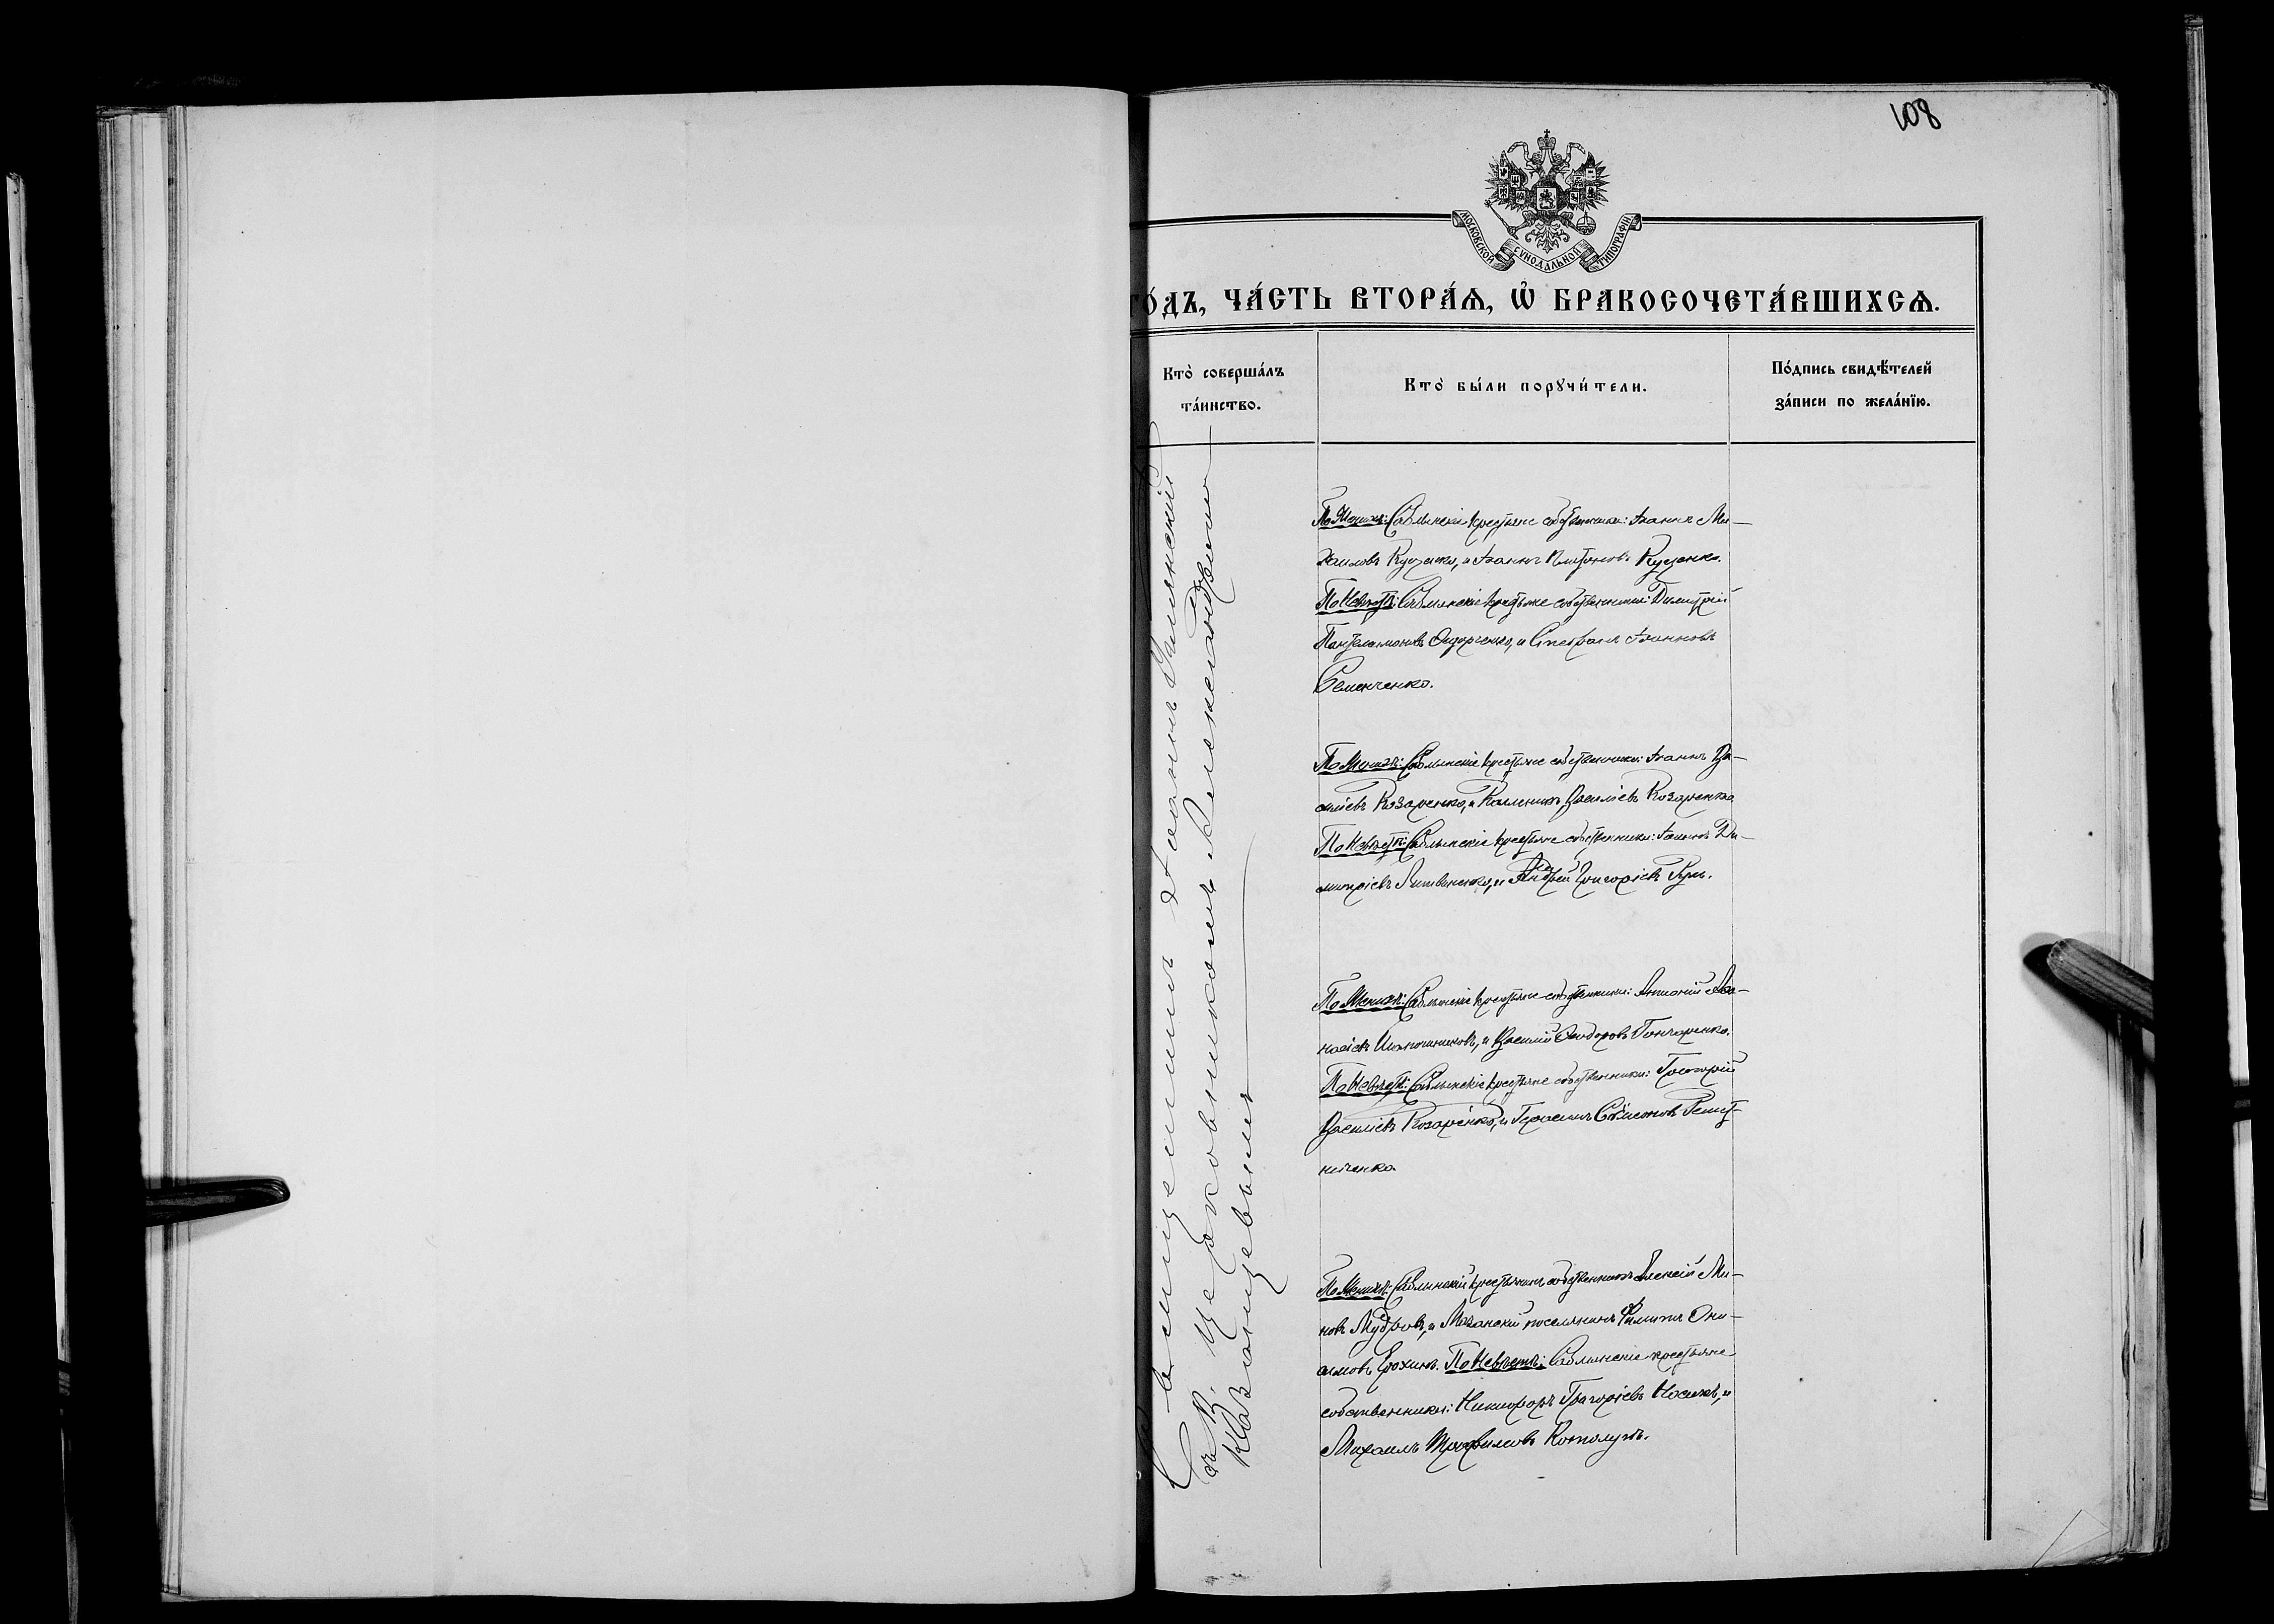 108
МОСКОВСКОЙ СѴНОДАЛЬНОЙ ТИПОГРАФІИ
ГО́ДЪ, ЧА́СТЬ ВТОРА́Ѧ, Ѽ БРАКОСОЧЕТА́ВШИХСѦ.
Кто̀ соверша́лъ
та́инство.
Кто̀ бы́ли порꙋчи́тели.
По́дпись свидѣ́телей
за́писи по жела́нїю.
Священникъ Іоаннъ
съ И. Церковникомъ Александромъ
Казанцевымъ
По Женихѣ: Саблынскіе крестьяне собственники: Іоаннъ Ми-
хаиловъ Куценко, и Іоаннъ Куценко.
По Невѣстѣ: Саблынскіе крестьяне собственники: Димитрій
Пантелеимоновъ Сидорченко, и Стефанъ Іоанновъ
Семенченко.
По Женихѣ: Саблынскіе крестьяне собственники: Іоаннъ Ва-
силіевъ Козаренко, и Каллиникъ Василіевъ Козаренко
По Невѣстѣ: Саблынскіе крестьяне собственники: Іоаннъ Ди-
митріевъ Литвиненко, и Григоріевъ
По Женихѣ: Саблынскіе крестьяне собственники: Антоній Аѳа-
насіевъ Шапошниковъ, и Василій Ѳеодоровъ Гончаренко.
По Невѣстѣ: Саблынскіе крестьяне собственники: Григорій
Василіевъ Козаренко, и Герасимъ Сѵмеоновъ Решет-
ниченко.
По Женихѣ: Саблынскій крестьянинъ собственникъ Алексій Ми-
новъ Мудровъ, и Мазанскій поселянинъ Филиппъ Они-
симовъ Ерохинъ. По Невѣстѣ: Саблынскіе крестьяне
собственники: Никифоръ Григоріевъ Носикъ, и
Михаилъ Трофимовъ Котолупъ.